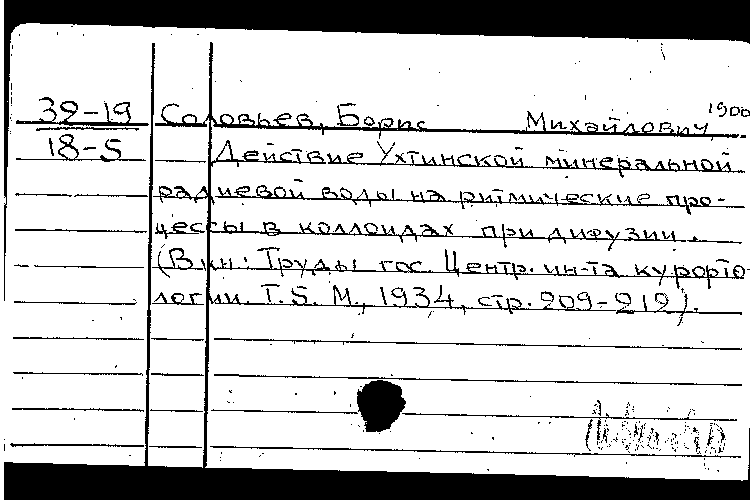 1900
39-19 Соловьев, Борис Михайлович,
18-5 Действие Ухтинской минеральной
радиевой воды на ритмические про-
цессы в коллоидах при дифузии.
(В кн: Труды гос. Центр. ин-та курорто-
логии. Т. 5. М., 1934, стр. 209-212).